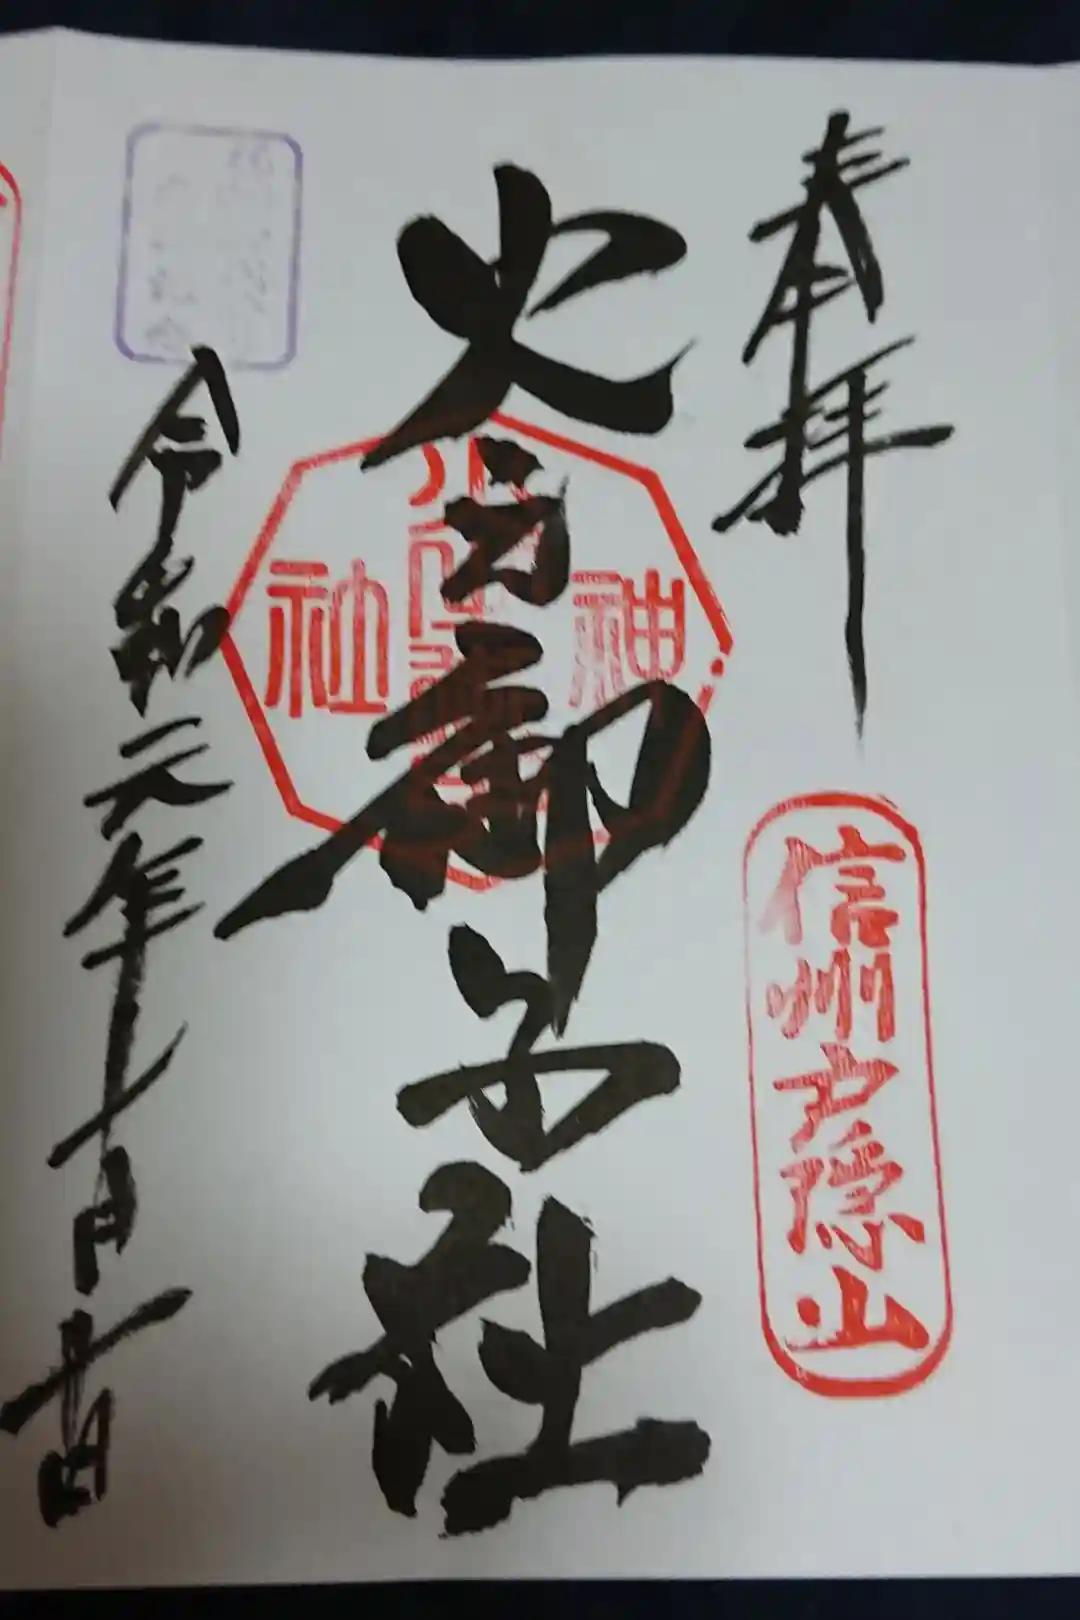 奉拝
信州戸隠山
火之御子社
神
社
令和元年十月